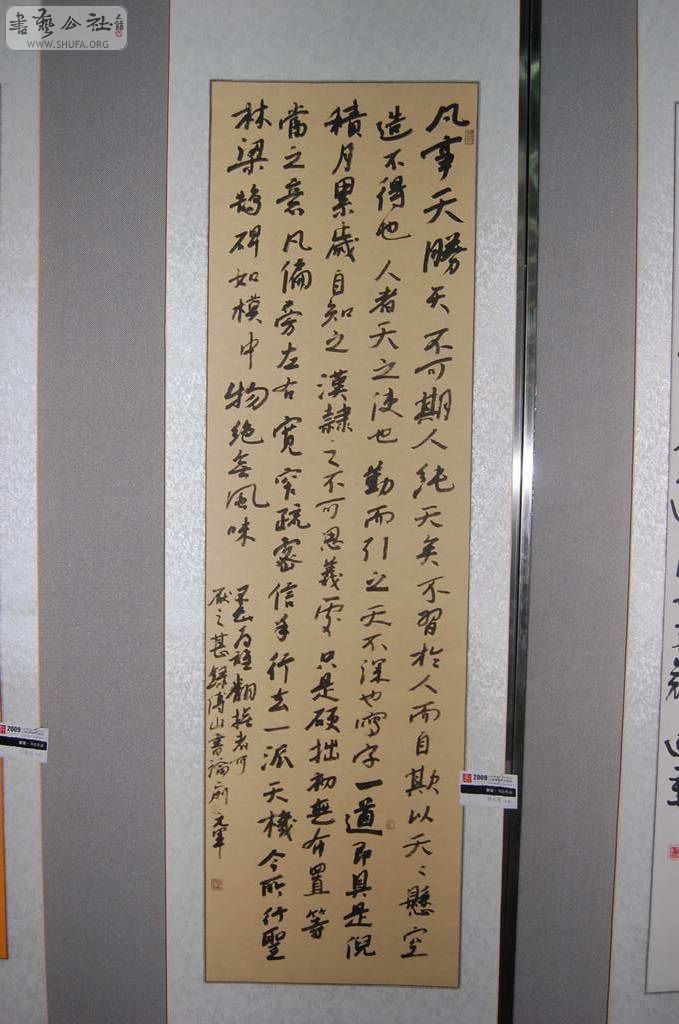 書藝公社
WWW.SHUFA.ORG
凡事天勝天不可期人純天矣不習於人而自欺以天〻懸空
造不得也人者天之使也勤而引之天不深也寫字一道即具是倪
積月累歲自知之漢隸之不可思義處只是硬拙初無布置等
當之意凡偏旁左右寬窄疏密信手行去一派天機今所行聖
林梁鵠碑如模中物絕無風味
為誰翻撫者可
厭之甚錄傅山書論元軍
2009
2009